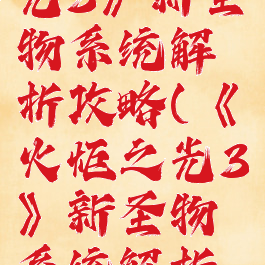 光3》新圣
物系统解
析攻略(《
火炬之光3
》新圣物
系统解析